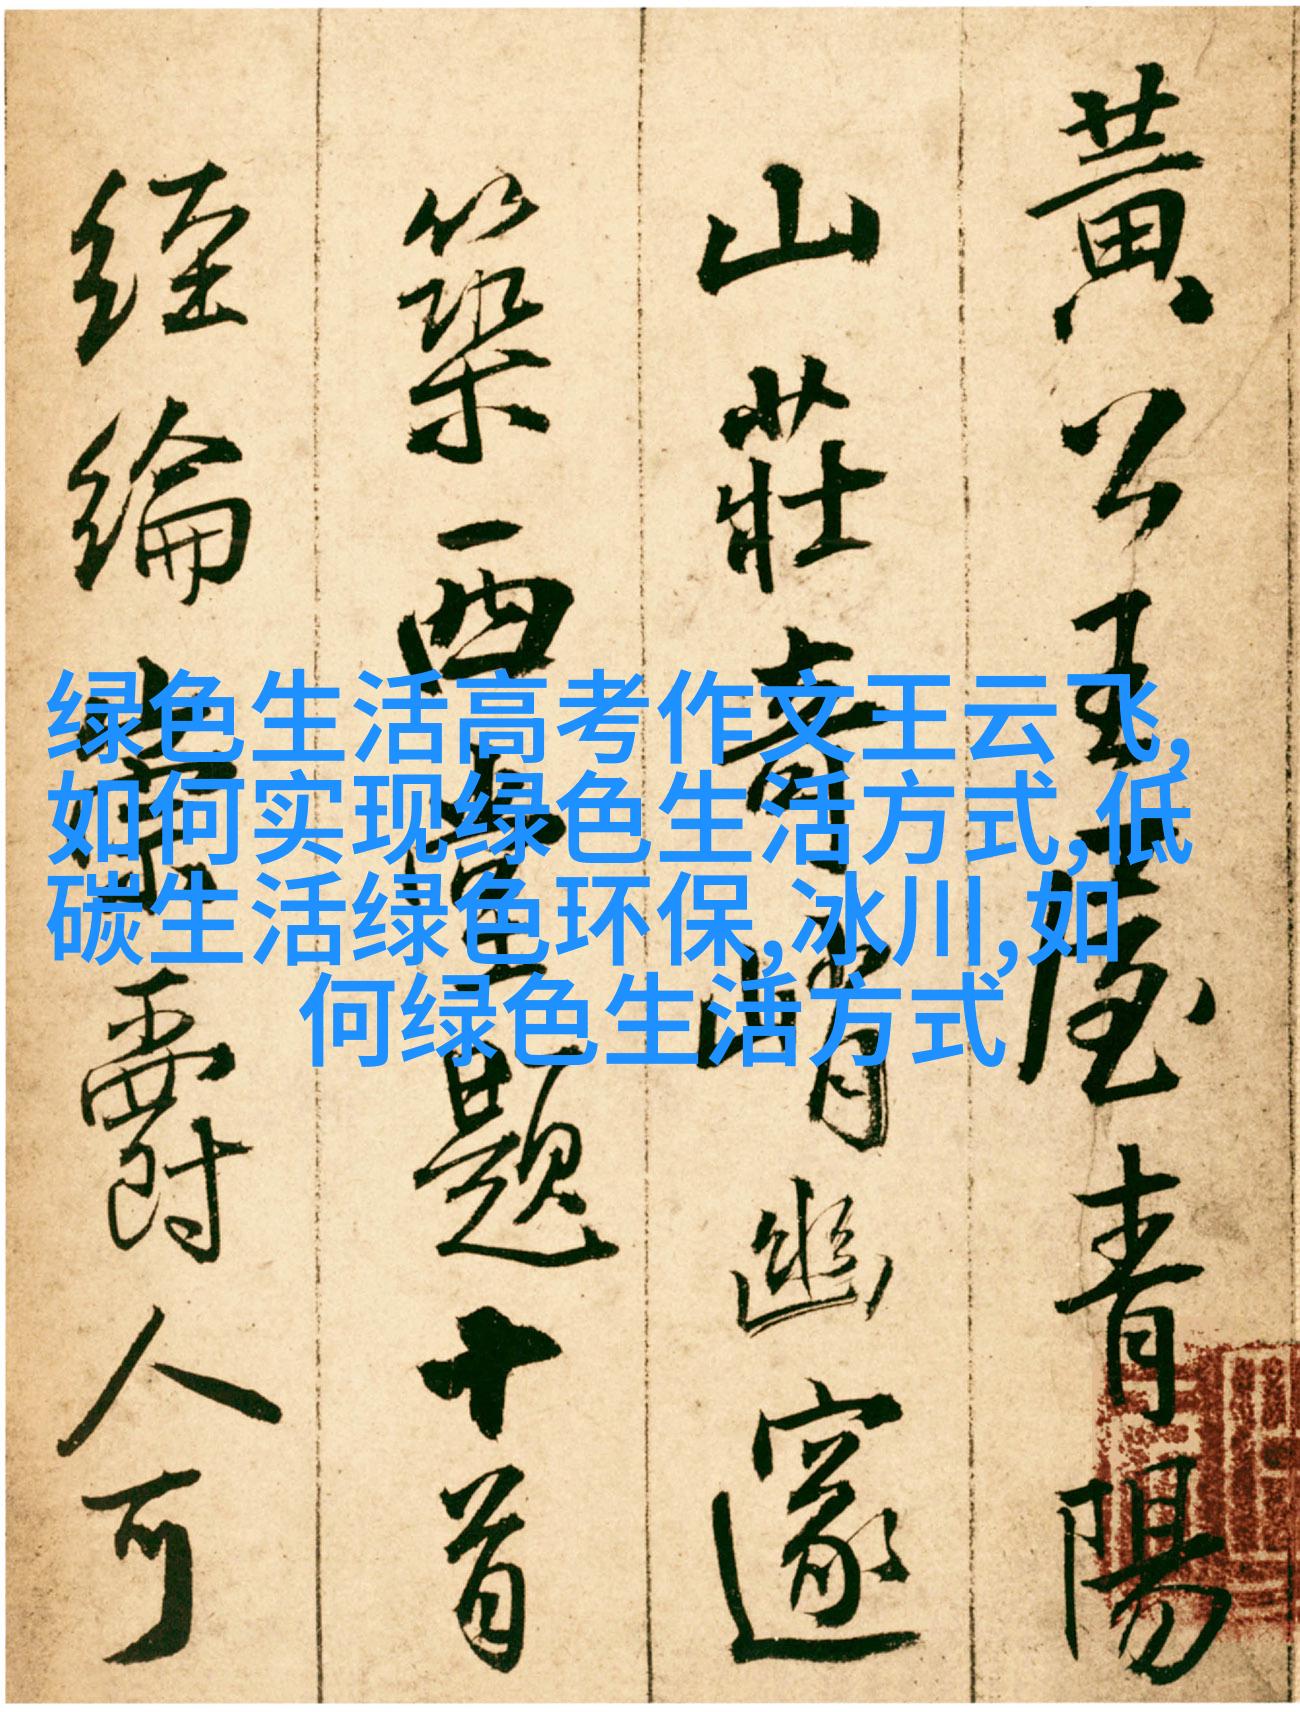 黄公王屋青陽
山莊奇峭幽邃
築西臺題十首
經綸業爵人可
绿色生活高考作文王云飞,
如何实现绿色生活方式,低
碳生活绿色环保,冰川,如
何绿色生活方式